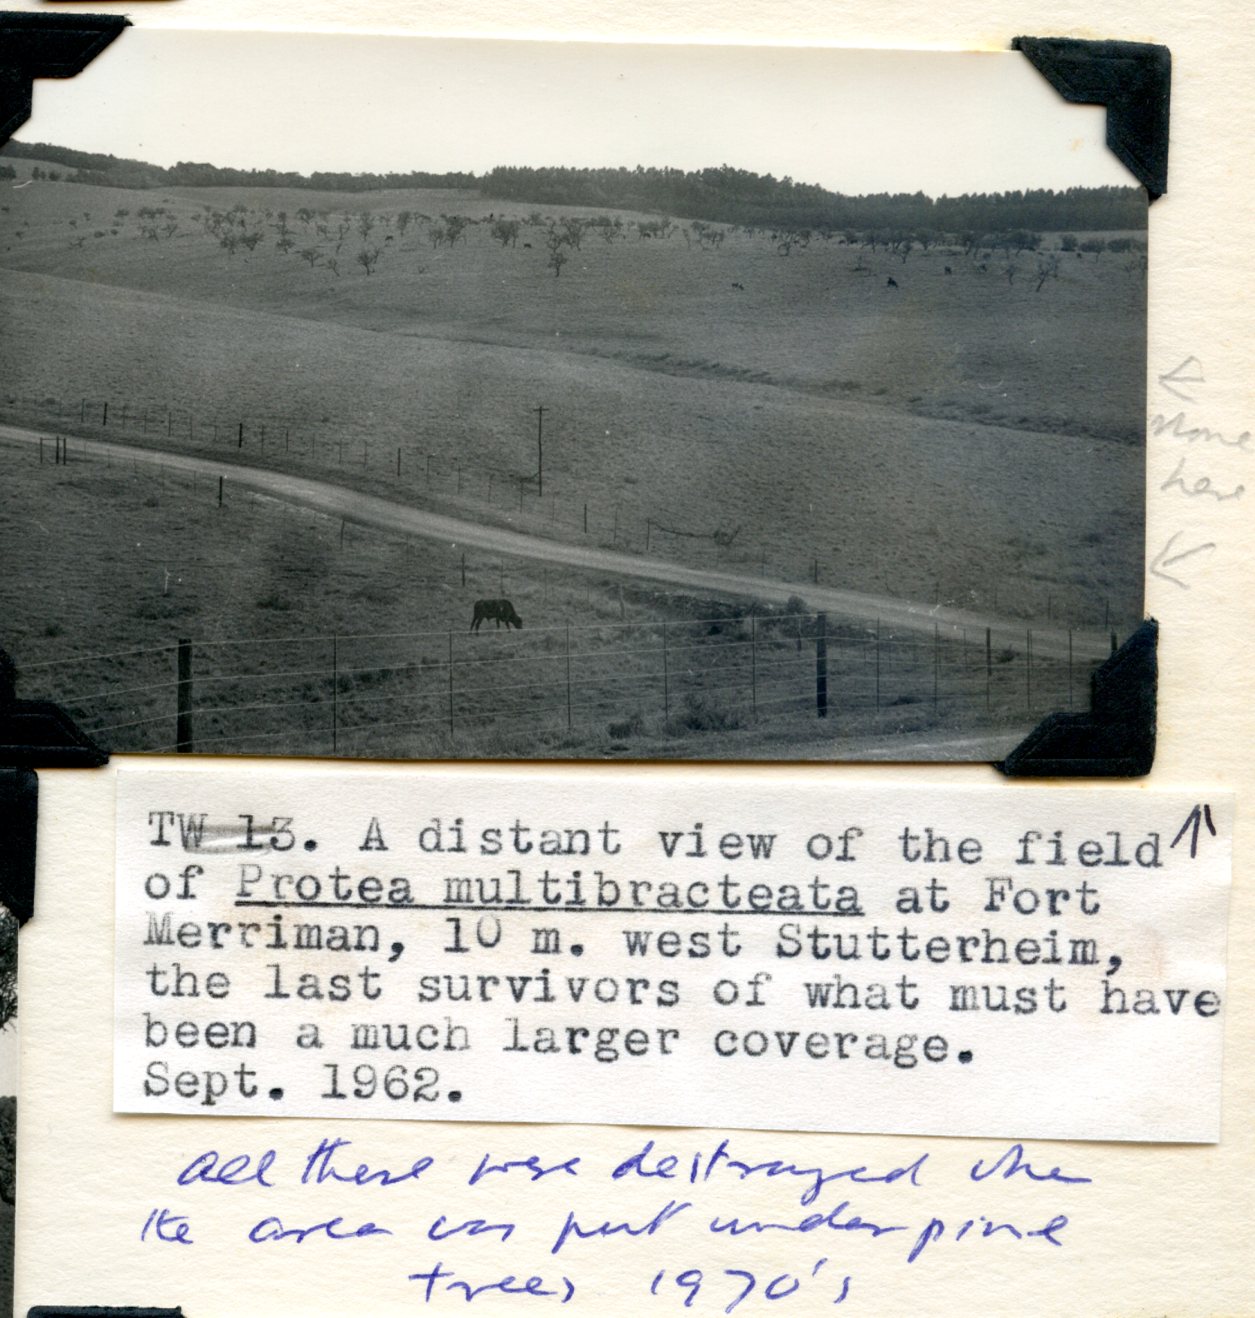 stone
here
TW 13. A distant view of the field
of Protea multibracteata at Fort
Merriman, 10 m. west Stutterheim,
the last survivors of what must have
been a much larger coverage.
Sept. 1962.
all these were destroyed when
the area was put under pine
trees 1970's